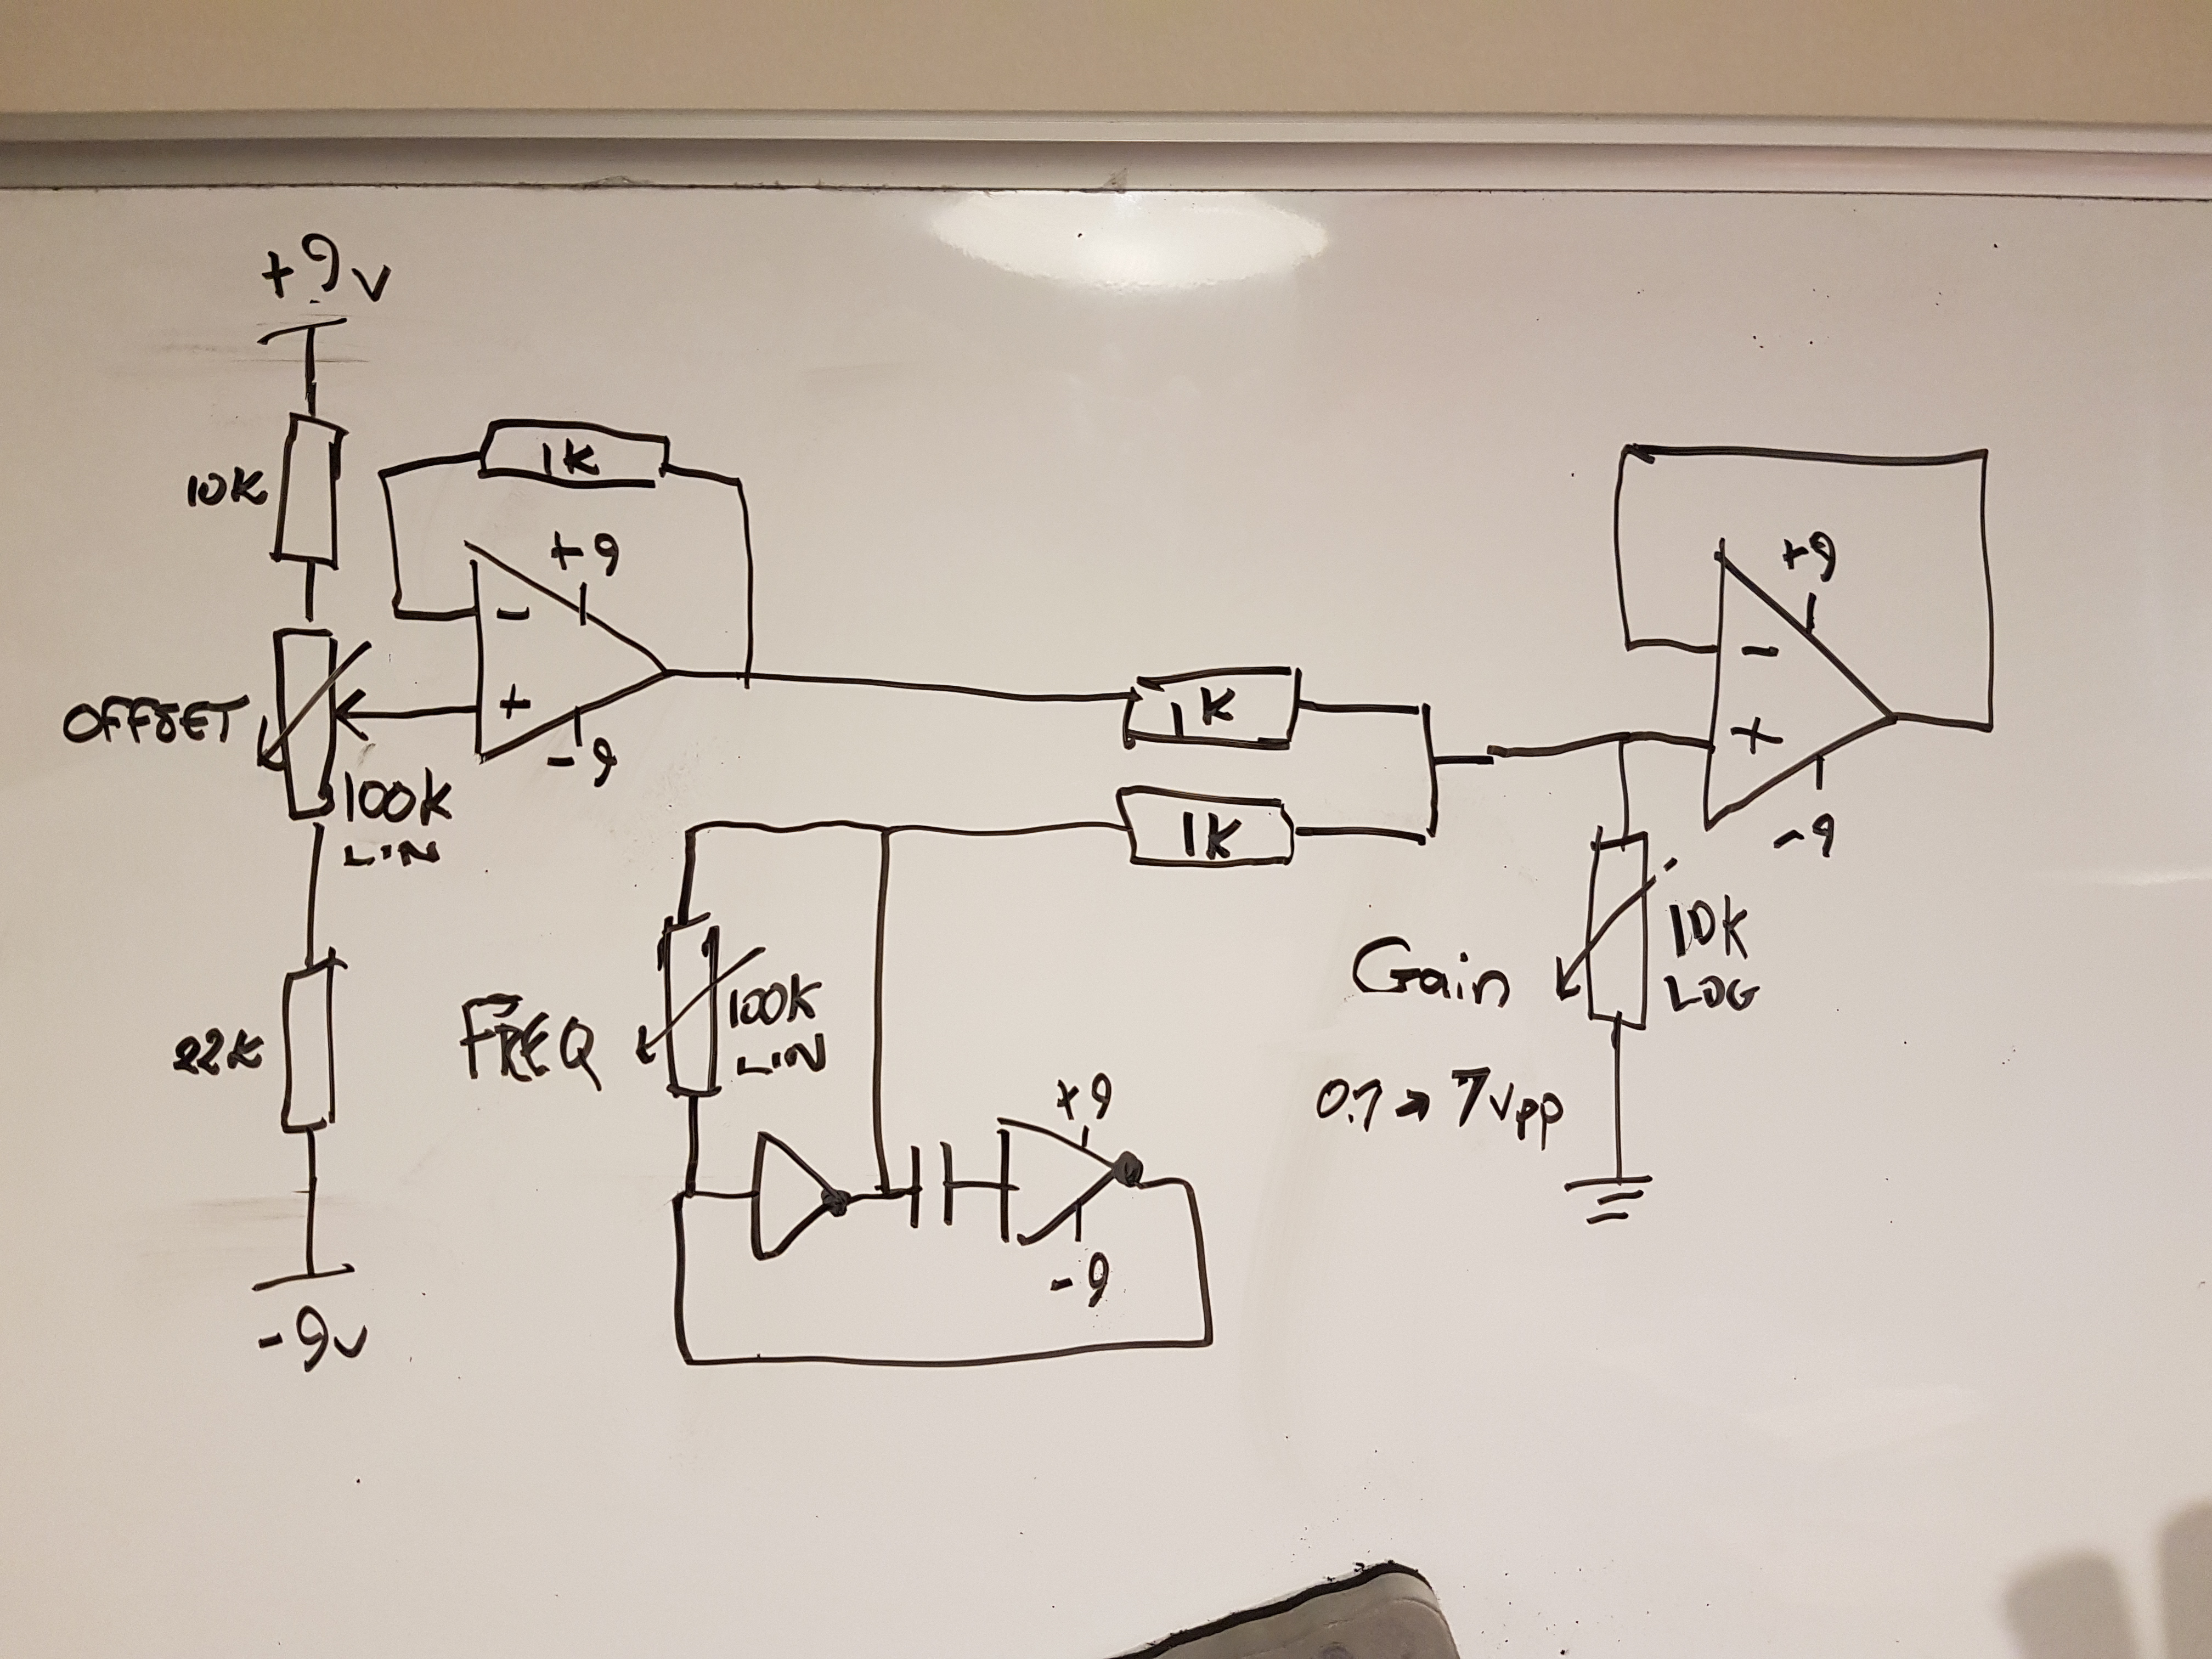 +9v
10K
1K
+9
-
+
-9
OFFSET
100K
LIN
22K
-9v
1K
1K
FREQ
100K
LIN
+9
-9
+9
-
+
-9
Gain
10K
LOG
0.7 → 7vpp